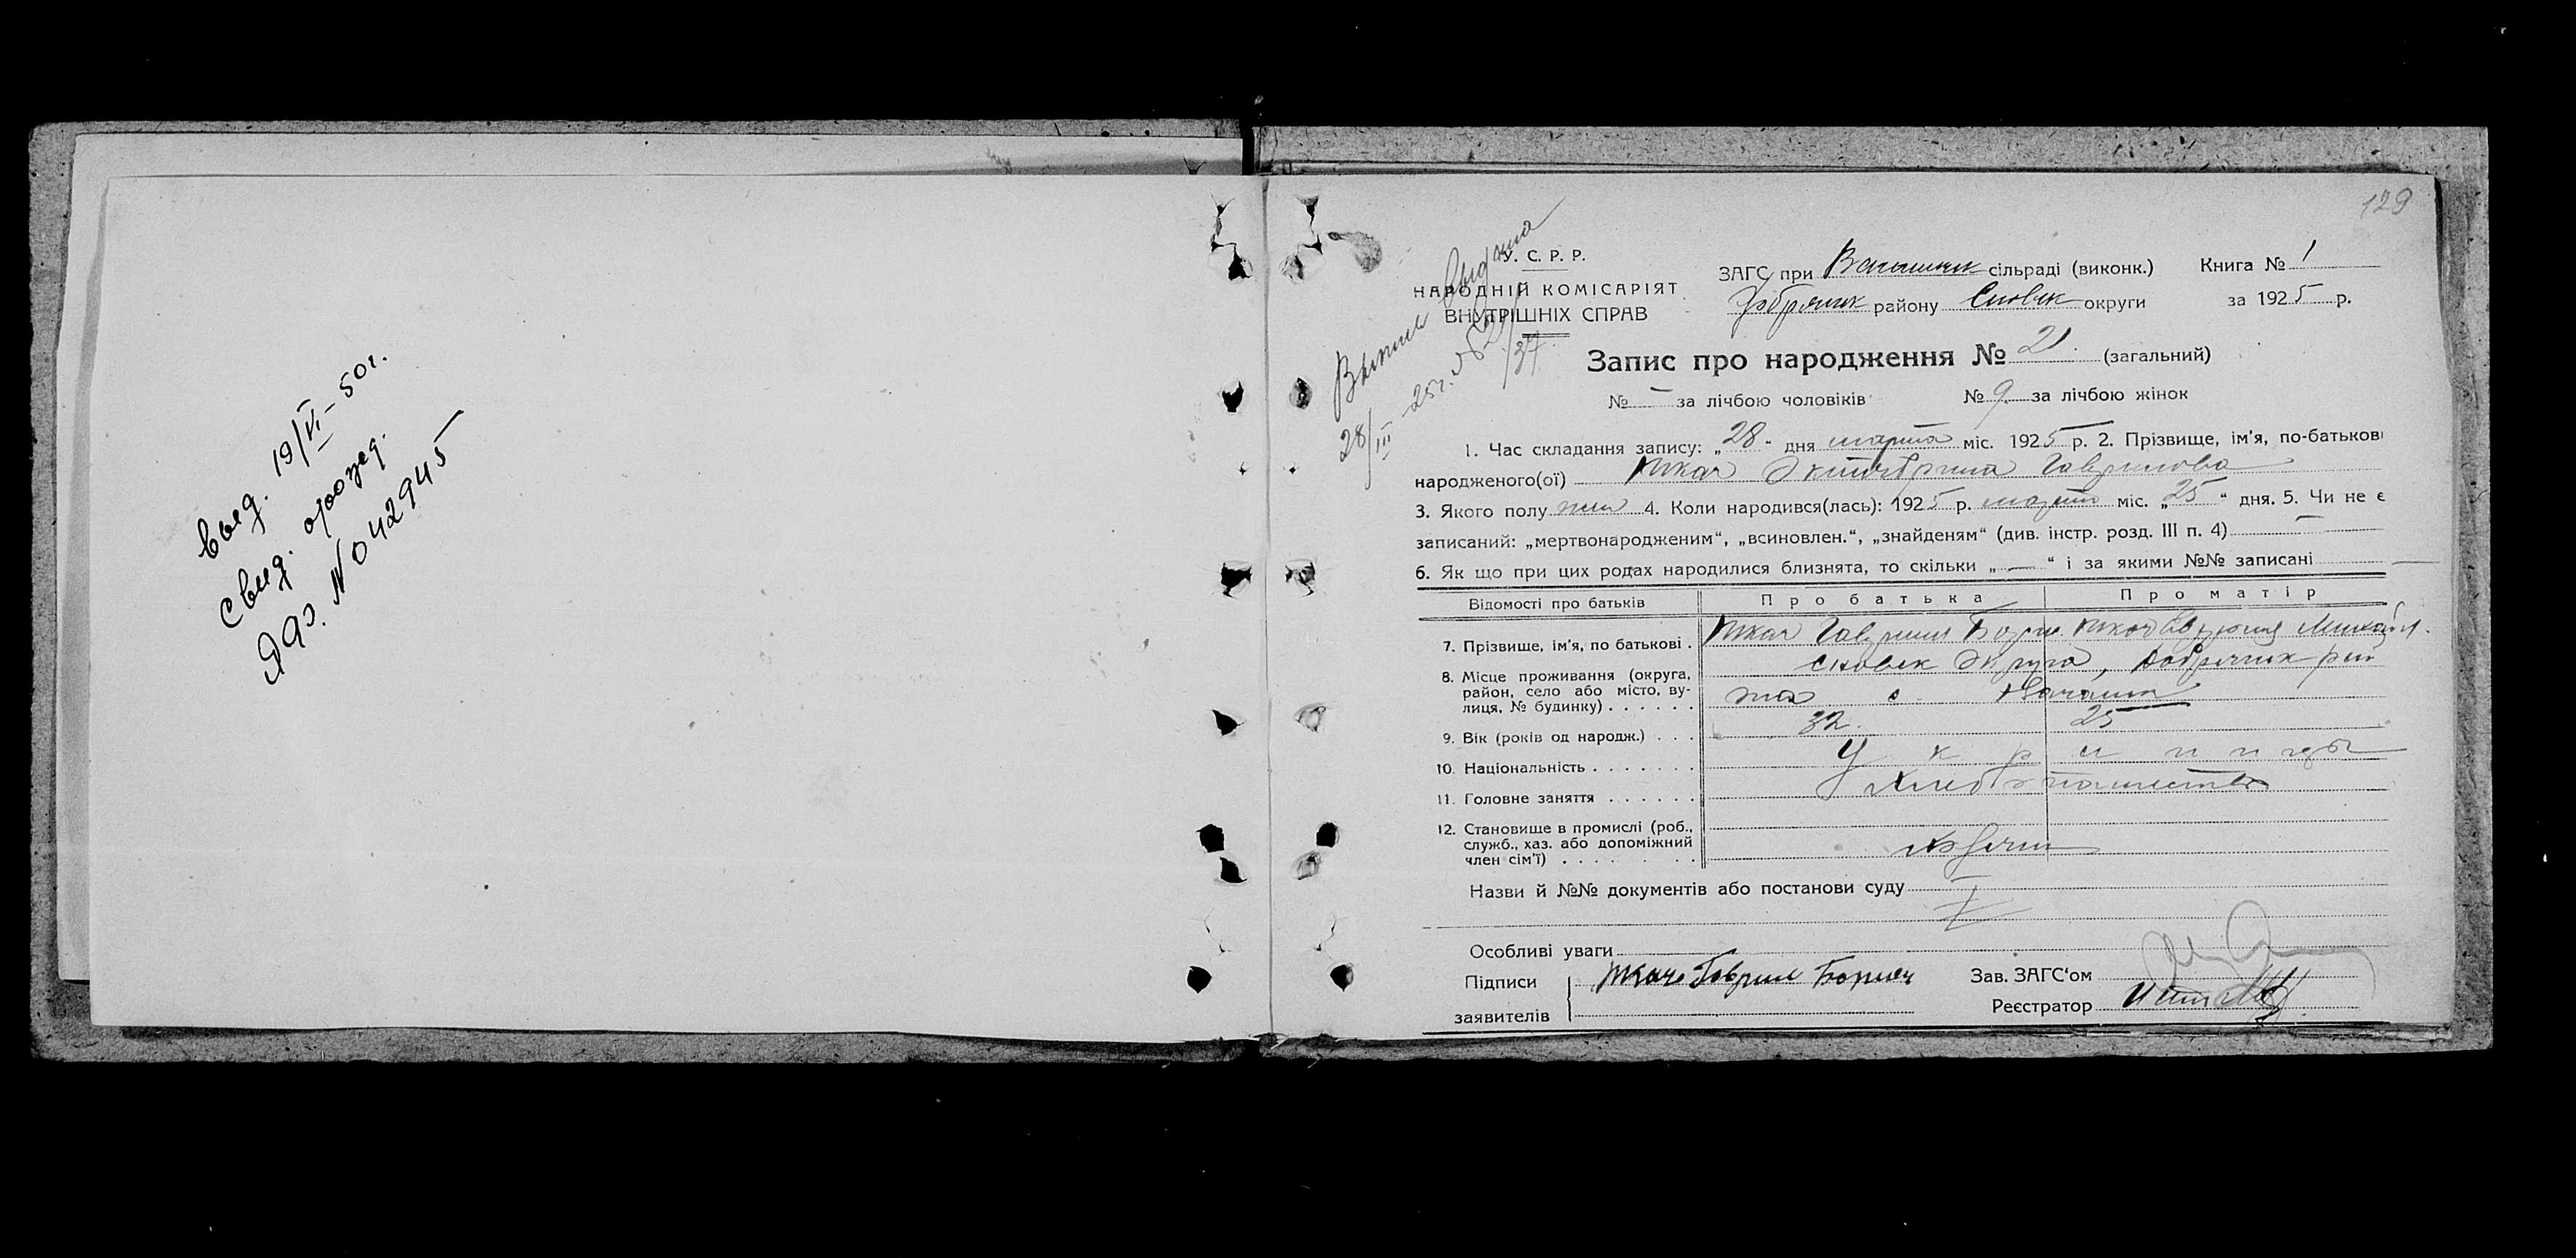 выд. 19/VI-50г.
свид. о рожд.
ЯДЭ. №042945
129
Выпись выдана
28/III 25г. №
У. С. Р. Р.
НАРОДНІЙ КОМІСАРІЯТ
ВНУТРІШНІХ СПРАВ
ЗАГС при сільраді (виконк.) Книга № 1
Добрянск району Сновск округи за 1925 р.
Запис про народження № 21 (загальний)
№ — за лічбою чоловіків № 9 за лічбою жінок
1. Час складання запису: „28" дня марта міс. 1925 р. 2. Прізвище, ім'я, по-батькові
народженого(ої) Ткач Октябрина Гаврилова
3. Якого полу жен 4. Коли народився(лась): 1925 р. марта міс. „25" дня. 5. Чи не є
записаний: „мертвонародженим", „всиновлен.", „знайденям" (див. інстр. розд. III п. 4) —
6. Як що при цих родах народилися близнята, то скільки „—" і за якими №№ записані —
Відомості про батьків Про батька Про матір
7. Прізвище, ім'я, по батькові . Ткач Гаврил Борис. Ткач Михайл.
8. Місце проживання (округа, район, село або місто, вулиця, № будинку) . . . . . . Сновск Округа, Добрянск рай
на с.
9. Вік (років од народж.) . . . 32. 25
10. Національність . . . . . . . Украинцы
11. Головне заняття . . . . . . Хлебопашество
12. Становище в промислі (роб.,
служб., хаз. або допоміжний
член сім'ї) . . . . . . . Хозяин
Назви й №№ документів або постанови суду
Особливі уваги
Підписи Ткач Гаврил Борисич Зав. ЗАГС'ом
заявителів Реєстратор